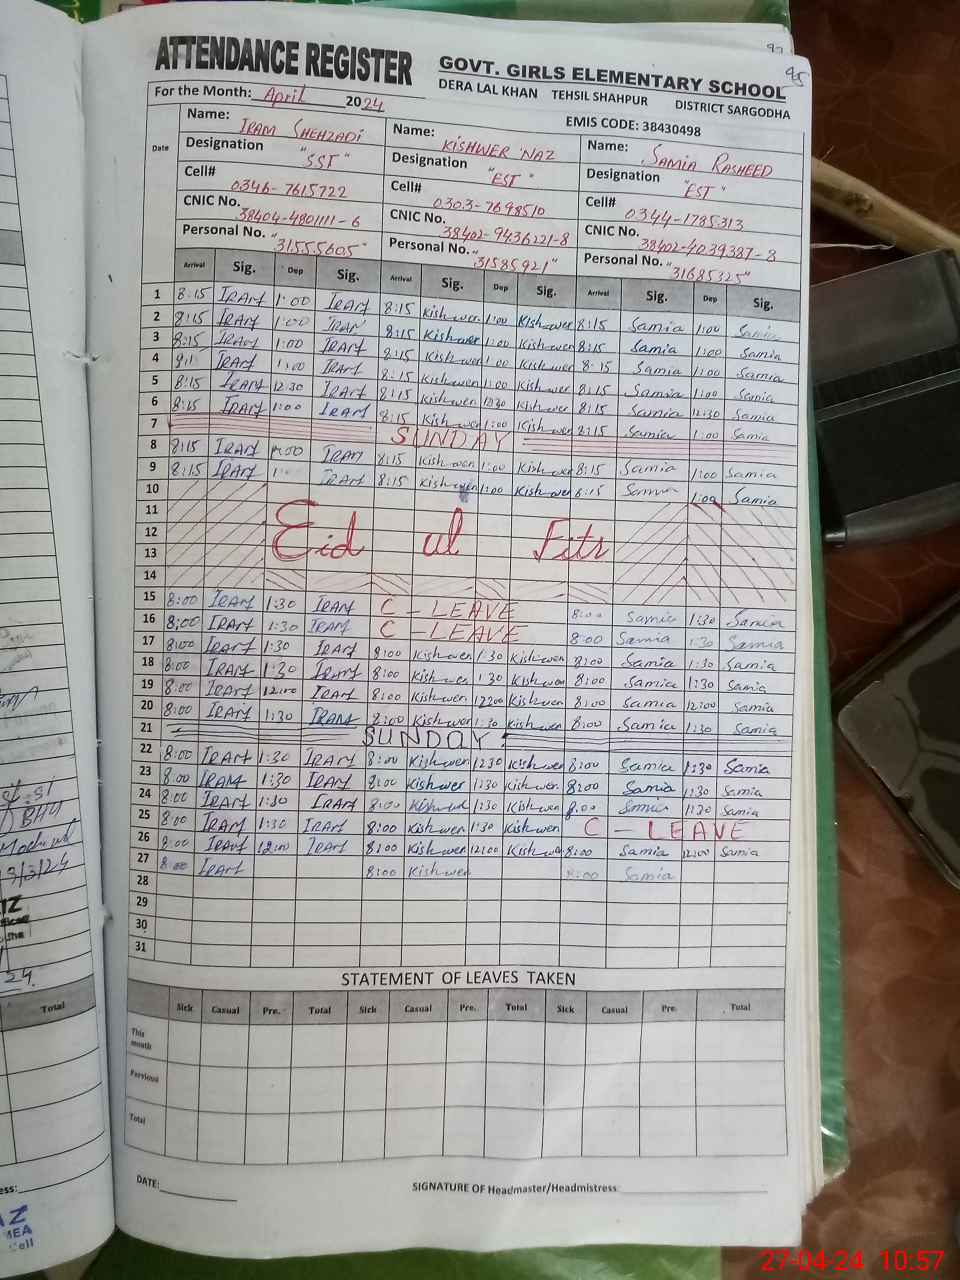 92
95
ATTENDANCE REGISTER
GOVT. GIRLS ELEMENTARY SCHOOL
DERA LAL KHAN TEHSIL SHAHPUR DISTRICT SARGODHA
For the Month: April 2024
EMIS CODE: 38430498
Date
Name: IRAM SHEHZADI
Designation "SST"
Cell# 0346-7615722
CNIC No. 38404-4801111-6
Personal No. "31555605"
Name: KISHWER NAZ
Designation "EST"
Cell# 0303-7698510
CNIC No. 38402-9436221-8
Personal No. "31585921"
Name: SAMIA RASHEED
Designation "EST"
Cell# 0344-1785313
CNIC No. 38402-4039387-8
Personal No. "31685325"
Arrival Sig. Dep Sig. Arrival Sig. Dep Sig. Arrival Sig. Dep Sig.
1 8:15 IRAM 1:00 IRAM 8:15 Kishwer 1:00 Kishwer 8:15 Samia 1:00 Samia
2 8:15 IRAM 1:00 IRAM 8:15 Kishwer 1:00 Kishwer 8:15 Samia 1:00 Samia
3 8:15 IRAM 1:00 IRAM 8:15 Kishwer 1:00 Kishwer 8:15 Samia 1:00 Samia
4 IRAM 1:00 IRAM 8:15 Kishwer 1:00 Kishwer 8:15 Samia 1:00 Samia
5 8:15 IRAM 12:30 IRAM 8:15 Kishwer 12:30 Kishwer 8:15 Samia 12:30 Samia
6 8:15 IRAM 1:00 IRAM 8:15 Kishwer 1:00 Kishwer 8:15 Samia 1:00 Samia
7 SUNDAY
8 8:15 IRAM 1:00 IRAM 8:15 Kishwer 1:00 Kishwer 8:15 Samia 1:00 Samia
9 8:15 IRAM IRAM 8:15 Kishwer 1:00 Kishwer 8:15 Samia 1:00 Samia
10
11
12 Eid ul Fitr
13
14
15 8:00 IRAM 1:30 IRAM C - LEAVE 8:00 Samia 1:30 Samia
16 8:00 IRAM 1:30 IRAM C - LEAVE 8:00 Samia 1:30 Samia
17 8:00 IRAM 1:30 IRAM 8:00 Kishwer 1:30 Kishwer 8:00 Samia 1:30 Samia
18 8:00 IRAM 1:30 IRAM 8:00 Kishwer 1:30 Kishwer 8:00 Samia 1:30 Samia
19 8:00 IRAM 12:00 IRAM 8:00 Kishwer 12:00 Kishwer 8:00 Samia 12:00 Samia
20 8:00 IRAM 1:30 IRAM 8:00 Kishwer 1:30 Kishwer 8:00 Samia 1:30 Samia
21 SUNDAY
22 8:00 IRAM 1:30 IRAM 8:00 Kishwer 1:30 Kishwer 8:00 Samia 1:30 Samia
23 8:00 IRAM 1:30 IRAM 8:00 Kishwer 1:30 Kishwer 8:00 Samia 1:30 Samia
24 8:00 IRAM 1:30 IRAM 8:00 Kishwer 1:30 Kishwer 8:00 Samia 1:30 Samia
25 8:00 IRAM 1:30 IRAM 8:00 Kishwer 1:30 Kishwer C - LEAVE
26 8:00 IRAM 12:00 IRAM 8:00 Kishwer 12:00 Kishwer 8:00 Samia 12:00 Samia
27 8:00 IRAM 8:00 Kishwer 8:00 Samia
28
29
30
31
STATEMENT OF LEAVES TAKEN
Sick Casual Pre. Total Sick Casual Pre. Total Sick Casual Pre. Total
This month
Pervious
Total
DATE:
SIGNATURE OF Headmaster/Headmistress:
Total
27-04-24 10:57